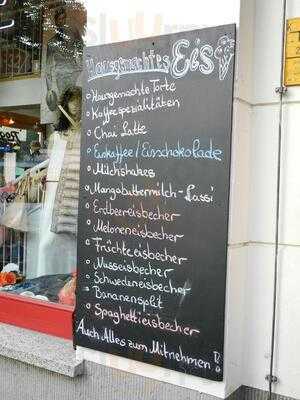 Hausgemachtes Eis
Hausgemachte Torte
Kaffeespezialitäten
Chai Latte
Eiskaffee / Eisschokolade
Milchshakes
Mangobuttermilch-Lassi
Erdbeereisbecher
Meloneneisbecher
Früchteeisbecher
Nusseisbecher
Schwedeneisbecher
Bananensplit
Spaghettieisbecher
Auch Alles zum Mitnehmen!